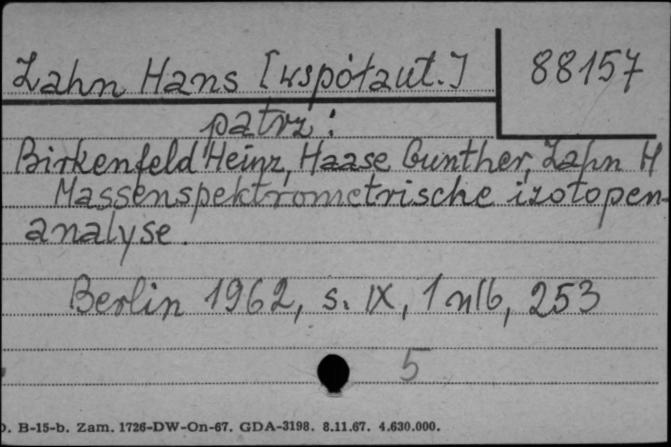 Zahn Hans [współaut.]
88157
patrz:
Birkenfeld Heinz, Haase Gunther, Zahn H
Massenspektrometrische izotopen-
analyse.
Berlin 1962, s. IX, 1 nlb, 253
5
D. B-15-b. Zam. 1726-DW-On-67. GDA-3198. 8.11.67. 4.630.000.